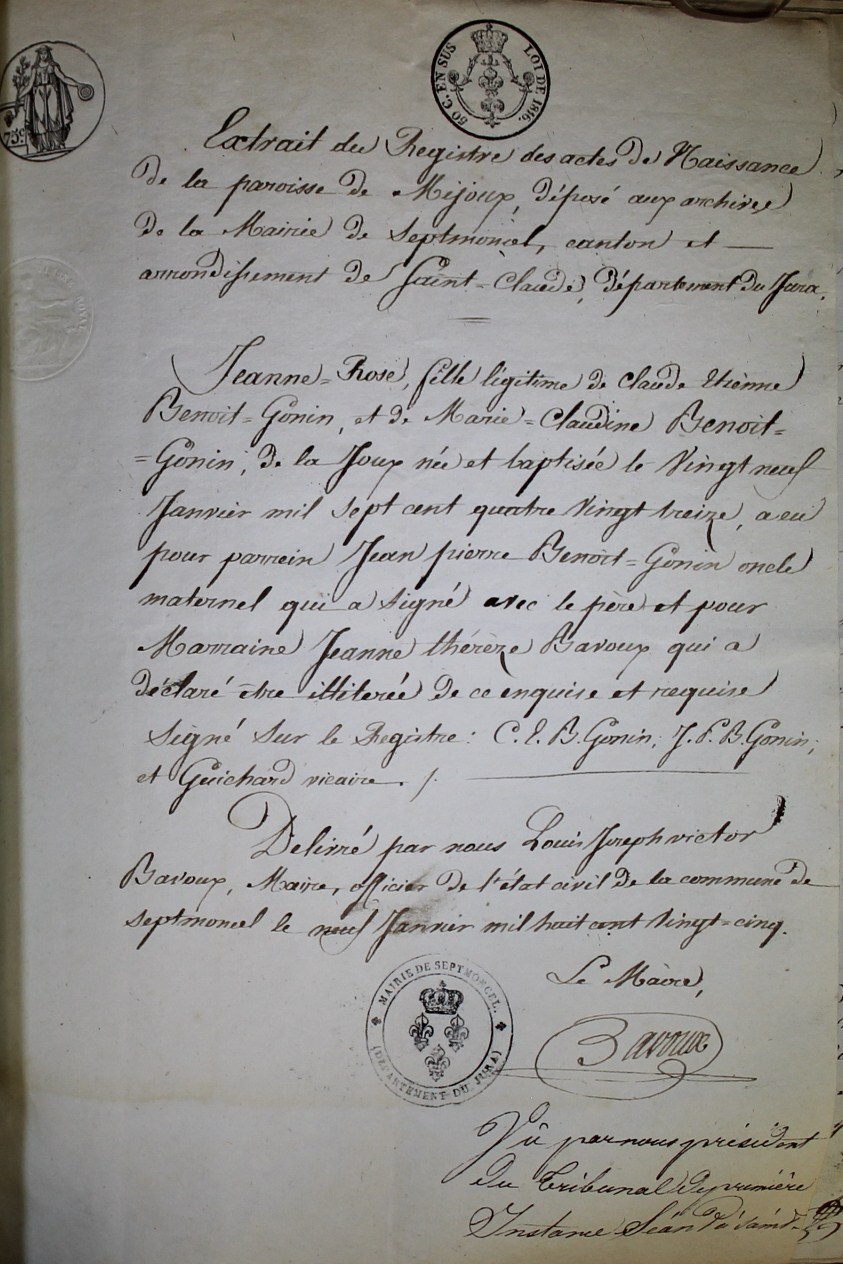 50 C. EN SUS LOI DE 1816.
75c
Extrait du Registre des actes de Naissance
de la paroisse de Mijoux, déposé aux archives
de la Mairie de Septmoncel, canton et
arrondissement de Saint-Claude, département du Jura.
Jeanne-Rose, fille légitime de Claude Etienne
Benoit-Gonin, et de Marie-Claudine Benoit-
-Gonin, de la Joux née et baptisée le Vingt neuf
Janvier mil sept cent quatre Vingt treize, a eu
pour parrein Jean pierre Benoit-Gonin oncle
maternel qui a signé avec le père et pour
Marraine Jeanne thérèze Bavoux qui a
déclaré être illiterée de ce enquise et requise
signé sur le Registre: C. E. B. Gonin; J. P. B. Gonin;
et Guichard vicaire. /.
Délivré par nous Louis Joseph victor
Bavoux, Maire, officier de l'état civil de la commune de
septmoncel le neuf Janvier mil huit cent Vingt-cinq.
Le Maire,
MAIRIE DE SEPTMONCEL.
(DÉPARTEMENT DU JURA)
Bavoux
Vu par nous président
du Tribunal de première
Instance Séant à Saint-